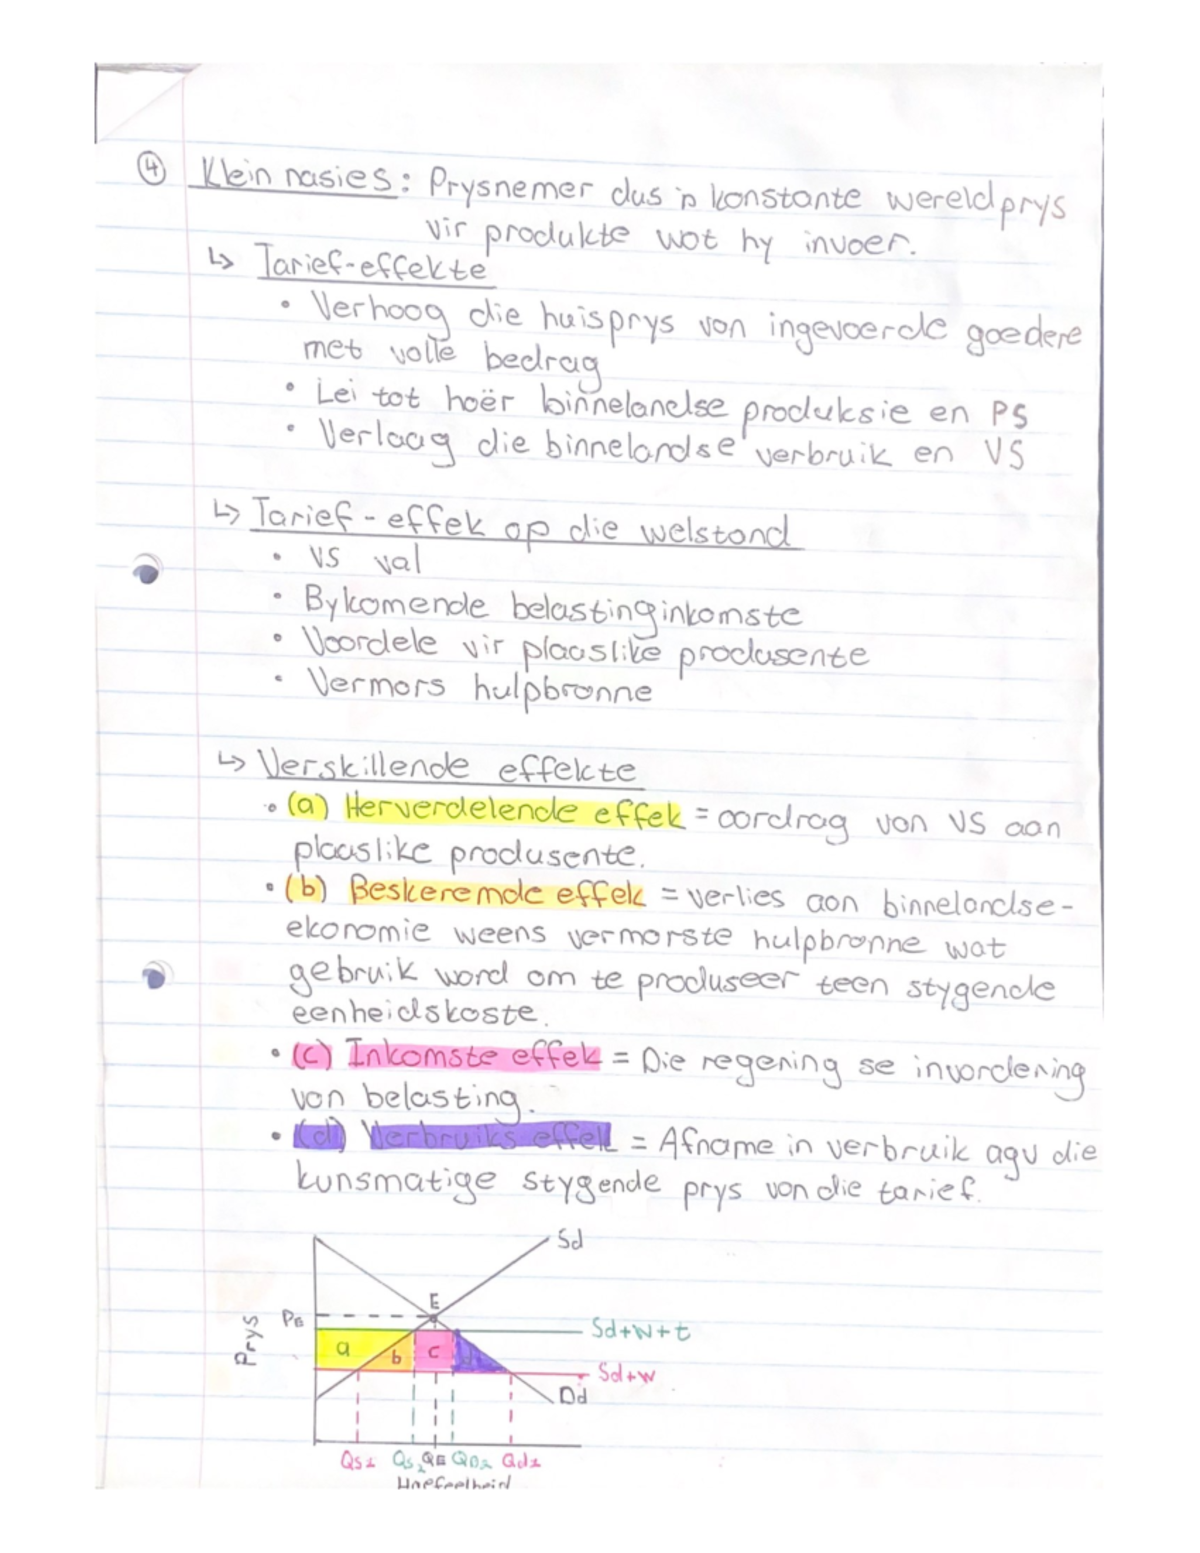 ④ Klein nasies: Prysnemer dus 'n konstante wereldprys
vir produkte wat hy invoer.
↳ Tarief-effekte
• Verhoog die huisprys van ingevoerde goedere
met volle bedrag
• Lei tot hoër binnelandse produksie en PS
• Verlaag die binnelandse verbruik en VS
↳ Tarief-effek op die welstand
• VS val
• Bykomende belastinginkomste
• Voordele vir plaaslike produsente
• Vermors hulpbronne
↳ Verskillende effekte
• (a) Herverdelende effek = oordrag van VS aan
plaaslike produsente.
• (b) Beskeremde effek = verlies aan binnelandse-
ekonomie weens vermorste hulpbronne wat
gebruik word om te produseer teen stygende
eenheidskoste.
• (c) Inkomste effek = Die regering se invordering
van belasting.
• (d) Verbruiks effek = Afname in verbruik agv die
kunsmatige stygende prys van die tarief.
Sd
E
PE
Sd+W+t
a b c d
Sd+W
Dd
Prys
Qs1 Qs2 QE QD2 Qd1
Hoefeelheid